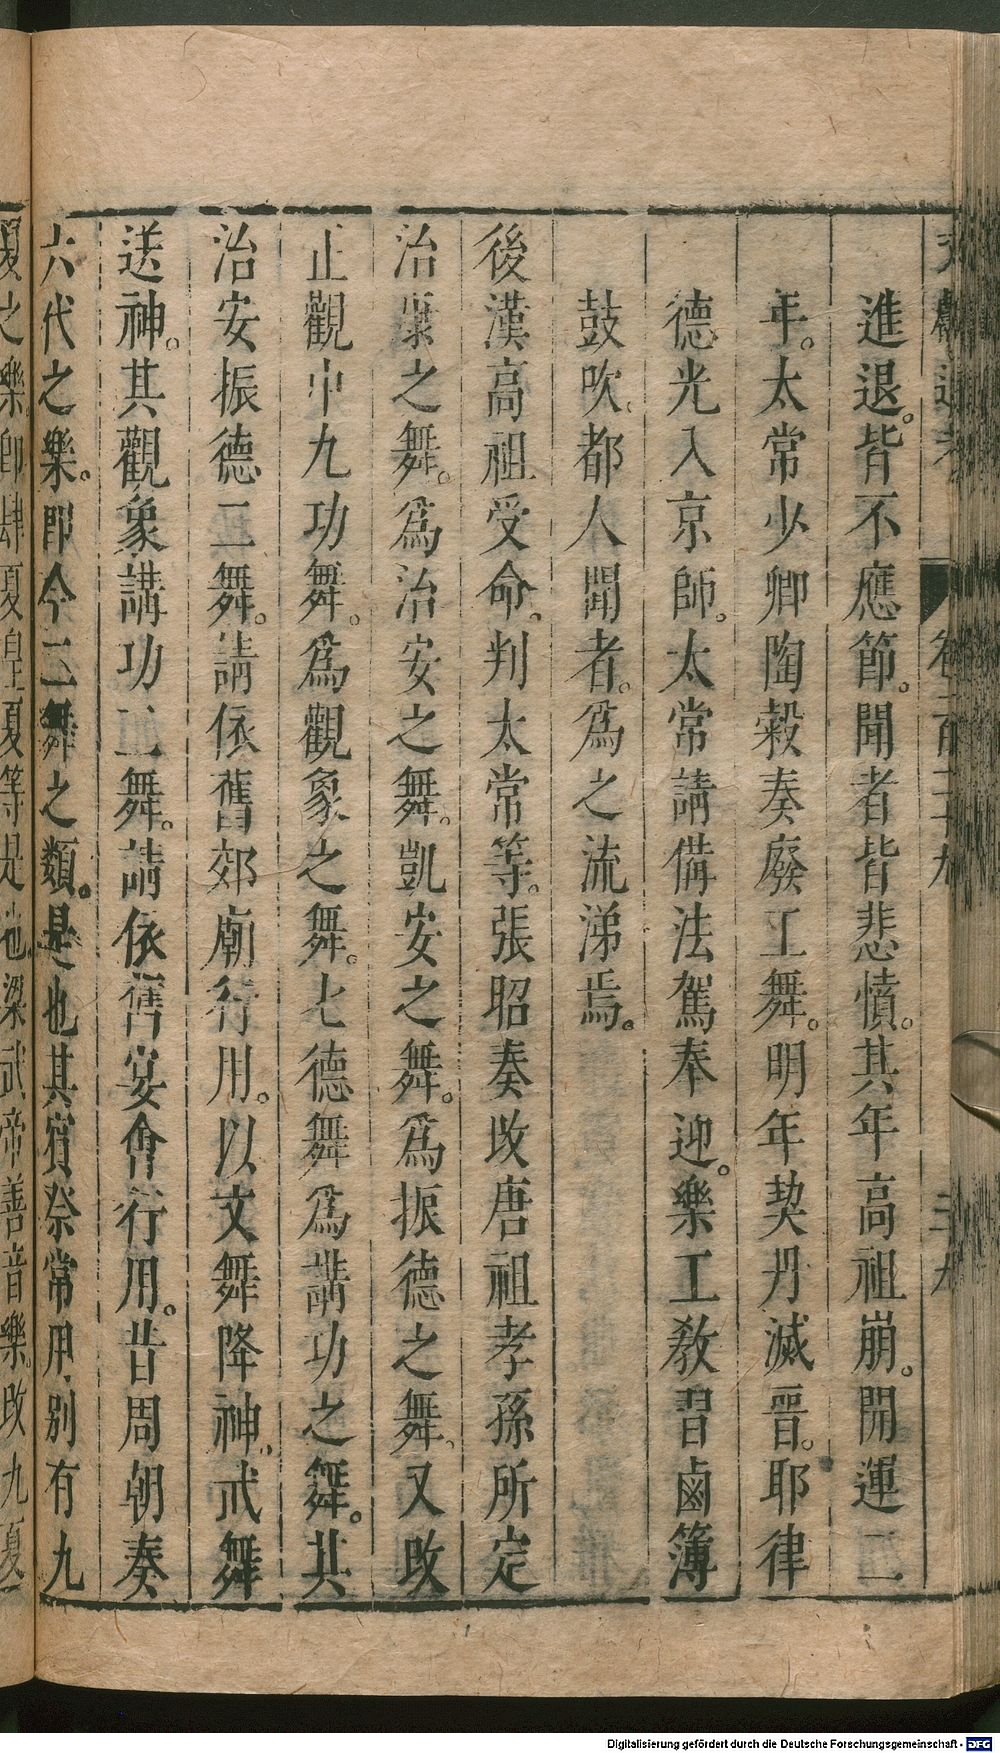 文獻通考 卷一百二十九 二十九
進退。皆不應節。聞者皆悲憤。其年高祖崩。開運二
年。太常少卿陶穀奏廢二舞。明年契丹滅晉。耶律
德光入京師。太常請備法駕奉迎。樂工教習鹵簿
鼓吹。都人聞者。爲之流涕焉。
後漢高祖受命。判太常等。張昭奏改唐祖孝孫所定
治康之舞。爲治安之舞。凱安之舞。爲振德之舞。又改
正觀中九功舞。爲觀象之舞。七德舞爲講功之舞。其
治安振德二舞。請依舊郊廟行用。以文舞降神。武舞
送神。其觀象講功二舞。請依舊宴會行用。昔周朝奏
六代之樂。即今二舞之類。是也其賓祭常用別有九
夏之樂。卽肆夏皇夏等是也。梁武帝善音樂。改九夏
Digitalisierung gefördert durch die Deutsche Forschungsgemeinschaft - DFG